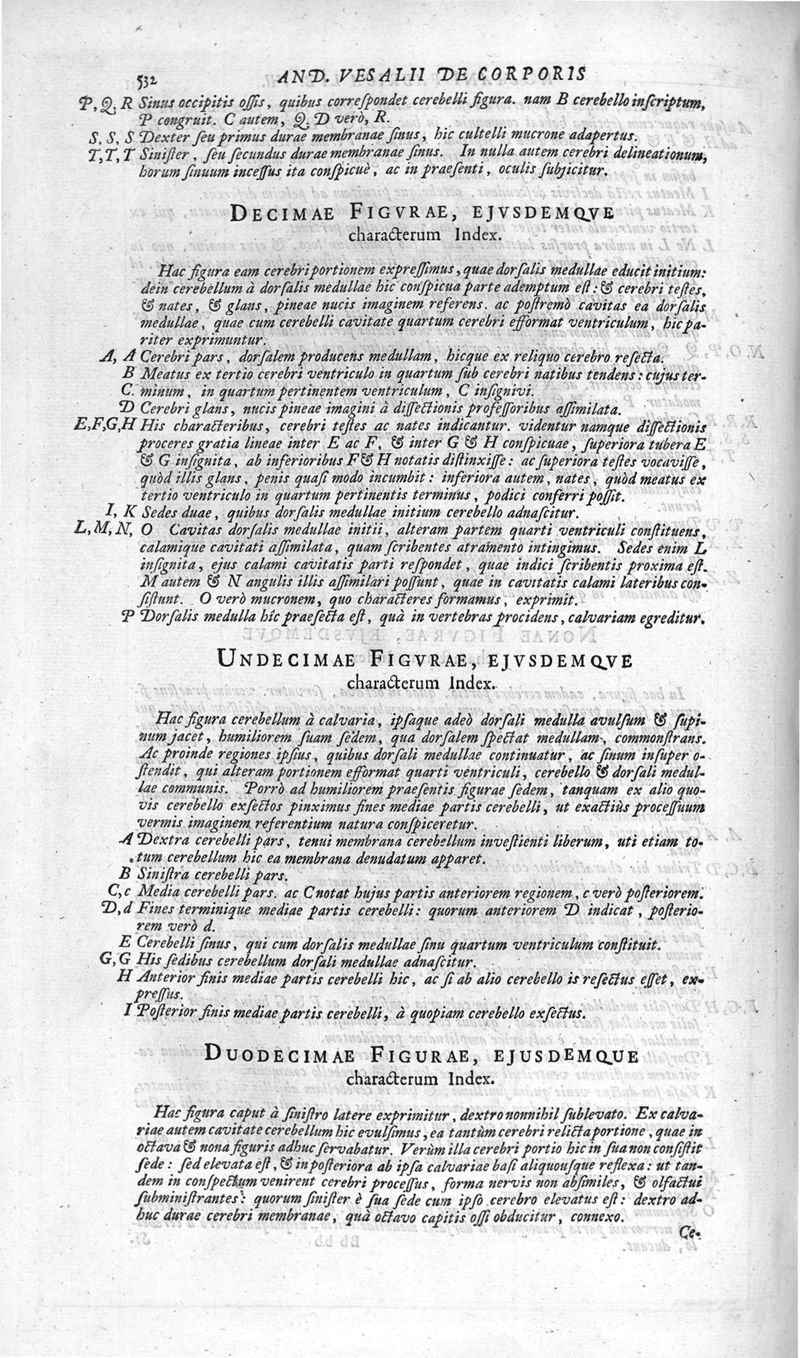 532 AND. VESALII DE CORPORIS
P, Q, R Sinus occipitis ossis, quibus correspondet cerebelli figura. nam B cerebello inscriptum,
P congruit. C autem, Q. D verò, R.
S, S, S Dexter seu primus durae membranae sinus, hic cultelli mucrone adapertus.
T, T, T Sinister, seu secundus durae membranae sinus. In nulla autem cerebri delineationum,
horum sinuum incessus ita conspicuè, ac in praesenti, oculis subjicitur.
DECIMAE FIGVRAE, EJVSDEMQVE
characterum Index.
Hac figura eam cerebri portionem expressimus, quae dorsalis medullae educit initium:
dein cerebellum à dorsalis medullae hic conspicua parte ademptum est: & cerebri testes,
& nates, & glans, pineae nucis imaginem referens. ac postremò cavitas ea dorsalis
medullae, quae cum cerebelli cavitate quartum cerebri efformat ventriculum, hic pa-
riter exprimuntur.
A, A Cerebri pars, dorsalem producens medullam, hicque ex reliquo cerebro resecta.
B Meatus ex tertio cerebri ventriculo in quartum sub cerebri natibus tendens: cujus ter-
C. minum, in quartum pertinentem ventriculum, C insignivi.
D Cerebri glans, nucis pineae imagini à dissectionis professoribus assimilata.
E,F,G,H His characteribus, cerebri testes ac nates indicantur. videntur namque dissectionis
proceres gratia lineae inter E ac F, & inter G & H conspicuae, superiora tubera E
& G insignita, ab inferioribus F & H notatis distinxisse: ac superiora testes vocavisse,
quòd illis glans, penis quasi modo incumbit: inferiora autem, nates, quòd meatus ex
tertio ventriculo in quartum pertinentis terminus, podici conferri possit.
I, K Sedes duae, quibus dorsalis medullae initium cerebello adnascitur.
L, M, N, O Cavitas dorsalis medullae initii, alteram partem quarti ventriculi constituens,
calamique cavitati assimilata, quam scribentes atramento intingimus. Sedes enim L
insignita, ejus calami cavitatis parti respondet, quae indici scribentis proxima est.
M autem & N angulis illis assimilari possunt, quae in cavitatis calami lateribus con-
sistunt. O verò mucronem, quo characteres formamus, exprimit.
P Dorsalis medulla hîc praesecta est, quà in vertebras procidens, calvariam egreditur.
UNDECIMAE FIGVRAE, EJVSDEMQVE
characterum Index.
Hac figura cerebellum à calvaria, ipsaque adeò dorsali medulla avulsum & supi-
num jacet, humiliorem suam sedem, qua dorsalem spectat medullam, commonstrans.
Ac proinde regiones ipsius, quibus dorsali medullae continuatur, ac sinum insuper o-
stendit, qui alteram portionem efformat quarti ventriculi, cerebello & dorsali medul-
lae communis. Porrò ad humiliorem praesentis figurae sedem, tanquam ex alio quo-
vis cerebello exsectos pinximus fines mediae partis cerebelli, ut exactiùs processuum
vermis imaginem referentium natura conspiceretur.
A Dextra cerebelli pars, tenui membrana cerebellum investienti liberum, uti etiam to-
tum cerebellum hic ea membrana denudatum apparet.
B Sinistra cerebelli pars.
C, c Media cerebelli pars. ac C notat hujus partis anteriorem regionem, c verò posteriorem.
D, d Fines terminique mediae partis cerebelli: quorum anteriorem D indicat, posterio-
rem verò d.
E Cerebelli sinus, qui cum dorsalis medullae sinu quartum ventriculum constituit.
G, G His sedibus cerebellum dorsali medullae adnascitur.
H Anterior finis mediae partis cerebelli hic, ac si ab alio cerebello is resectus esset, ex-
pressus.
I Posterior finis mediae partis cerebelli, à quopiam cerebello exsectus.
DUODECIMAE FIGURAE, EJUSDEMQUE
characterum Index.
Hac figura caput à sinistro latere exprimitur, dextro nonnihil sublevato. Ex calva-
riae autem cavitate cerebellum hic evulsimus, ea tantùm cerebri relicta portione, quae in
octava & nona figuris adhuc servabatur. Verùm illa cerebri portio hic in sua non consistit
sede: sed elevata est, & in posteriora ab ipsa calvariae basi aliquousque reflexa: ut tan-
dem in conspectum venirent cerebri processus, forma nervis non absimiles, & olfactui
subministrantes: quorum sinister è sua sede cum ipso cerebro elevatus est: dextro ad-
huc durae cerebri membranae, quà octavo capitis ossi obducitur, connexo.
Ce-